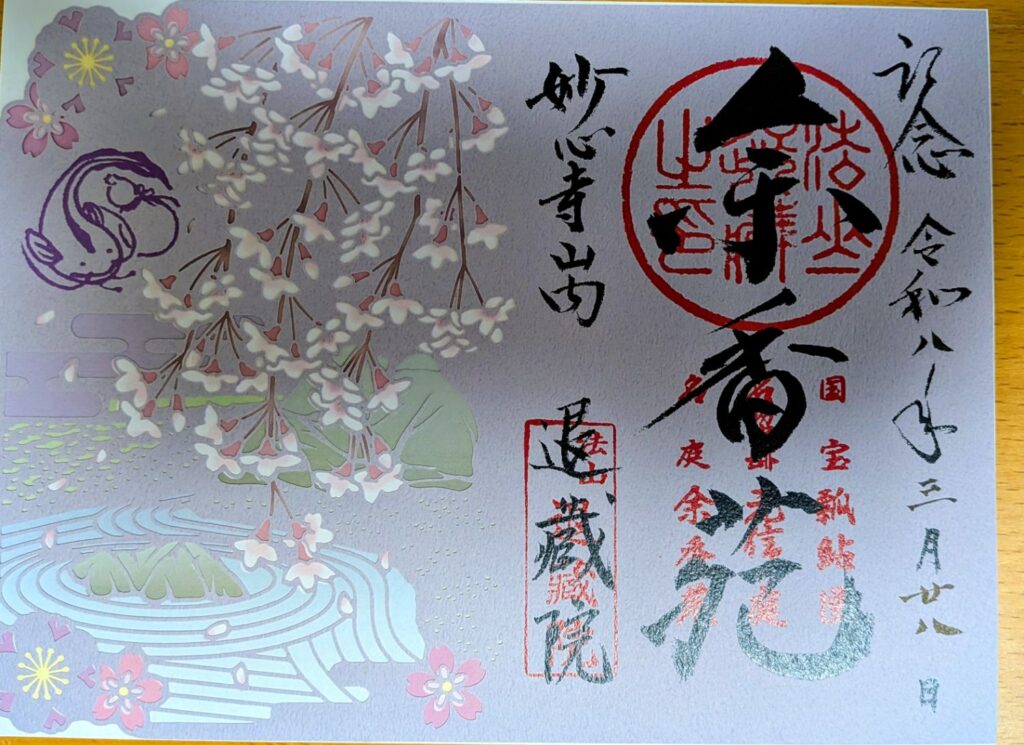 記念 令和八年三月廿八日
余香苑
国宝瓢鮎図
元信庭
名庭余香苑
妙心寺山内 退藏院
法山退藏院